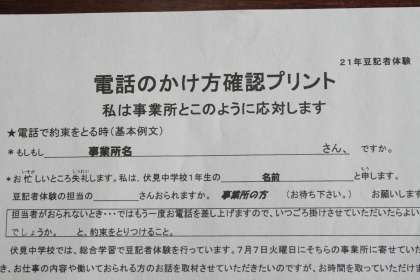 21年豆記者体験
電話のかけ方確認プリント
私は事業所とこのように応対します
★電話で約束をとる時(基本例文)
*もしもし 事業所名 さん、ですか。
*お忙しいところ失礼します。私は、伏見中学校1年生の 名前 と申します。
豆記者体験の担当の さんおられますか。 事業所の方 (お待ち下さい。) お願いしま
担当者がおられないとき・・・ではもう一度お電話を差し上げますので、いつごろ掛けさせていただいたらよい
でしょうか。 と、約束をとりつけること。
伏見中学校では、総合学習で豆記者体験を行っています。7月7日火曜日にそちらの事業所に寄せていた
き、お仕事の内容や働いておられる方のお話を取材させていただきたいのですが、お時間を取っていただ